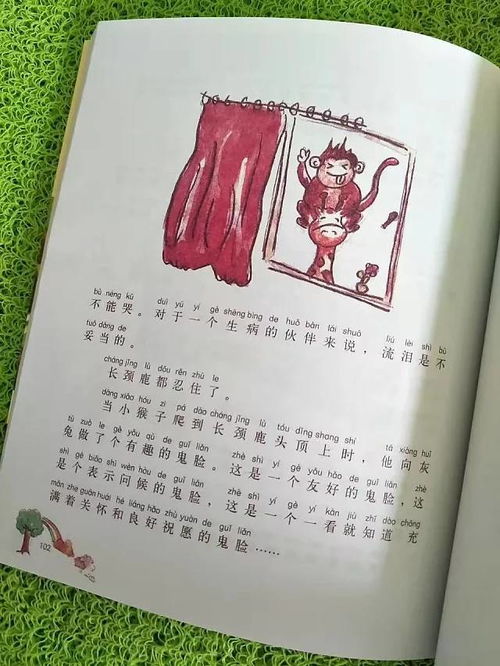 bù néng kū duì yú yí gè shēng bìng de huǒ bàn lái shuō liú lèi shì bù
不能哭。对于一个生病的伙伴来说，流泪是不
tuǒ dàng de
妥当的。
cháng jǐng lù dōu rěn zhù le
长颈鹿都忍住了。
dāng xiǎo hóu zi pá dào cháng jǐng lù tóu dǐng shang shí tā xiàng huī
当小猴子爬到长颈鹿头顶上时，他向灰
tù zuò le gè yǒu qù de guǐ liǎn zhè shì yí gè yǒu hǎo de guǐ liǎn zhè
兔做了个有趣的鬼脸。这是一个友好的鬼脸，这
shì gè biǎo shì wèn hòu de guǐ liǎn zhè shì yí gè yí kàn jiù zhī dào chōng
是个表示问候的鬼脸，这是一个一看就知道充
mǎn zhe guān huái hé liáng hǎo zhù yuàn de guǐ liǎn
满着关怀和良好祝愿的鬼脸……
102